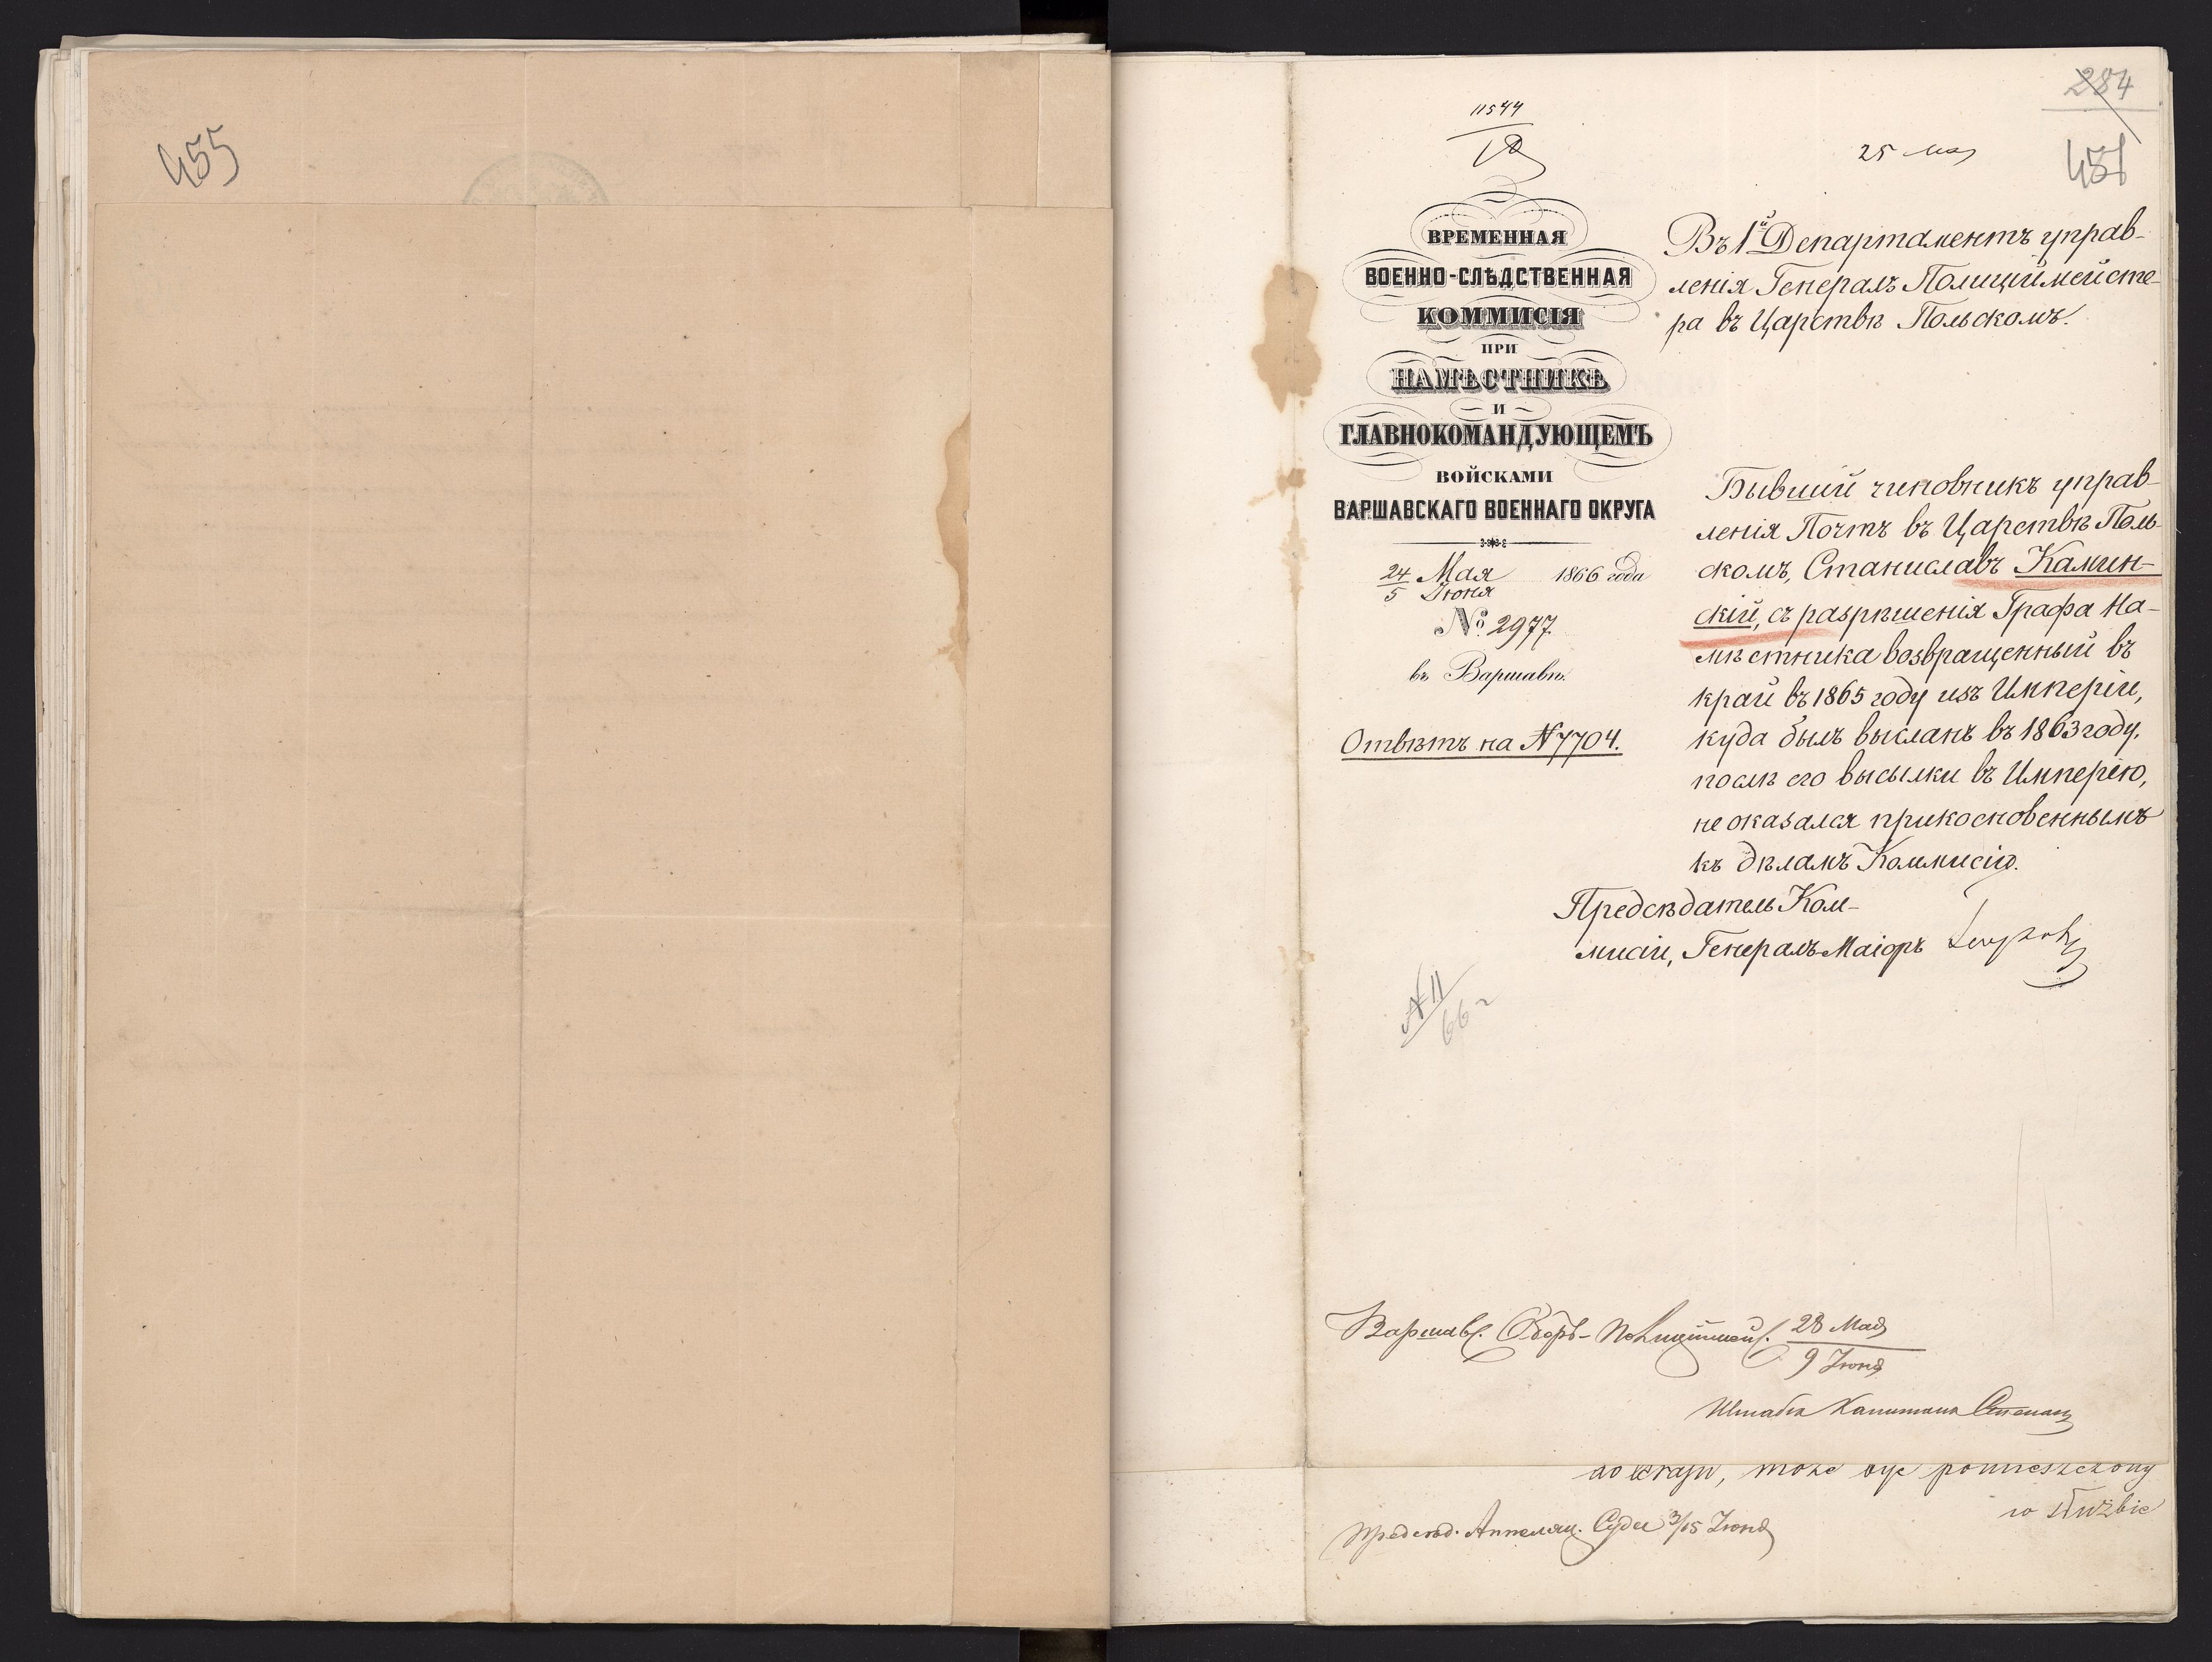 455
284
11544
25 мая
ВРЕМЕННАЯ
ВОЕННО-СЛѢДСТВЕННАЯ
КОММИСІЯ
ПРИ
НАМѢСТНИКѢ
И
ГЛАВНОКОМАНДУЮЩЕМЪ
ВОЙСКАМИ
ВАРШАВСКАГО ВОЕННАГО ОКРУГА
24 Мая 1866 года
5 Июня
№ 2977.
въ Варшавѣ.
Отвѣтъ на №7704.
Въ 1й Департаментъ управ-
ленія Генералъ Полицiймейсте-
ра въ Царствѣ Польскомъ.
Бывшій чиновникъ управ-
ленія Почтъ въ Царствѣ Поль-
скомъ, Станиславъ Камин-
скій, съ разрѣшенія Графа На-
мѣстника возвращенный въ
край въ 1865 году изъ Имперіи,
куда былъ высланъ въ 1863 году,
послѣ его высылки въ Имперію,
не оказался прикосновеннымъ
къ дѣламъ Коммисіи.
Предсѣдатель Ком-
мисіи, Генералъ-Маіоръ
№ 11
66 г
Варшавс. Оберъ-Полиціймейс. 28 Мая
9 Июня
Штабсъ Капитанъ
do kraju, może być pomieszczony
w służbie
Предсѣд. Аппеляц. Суда 3/15 Июня